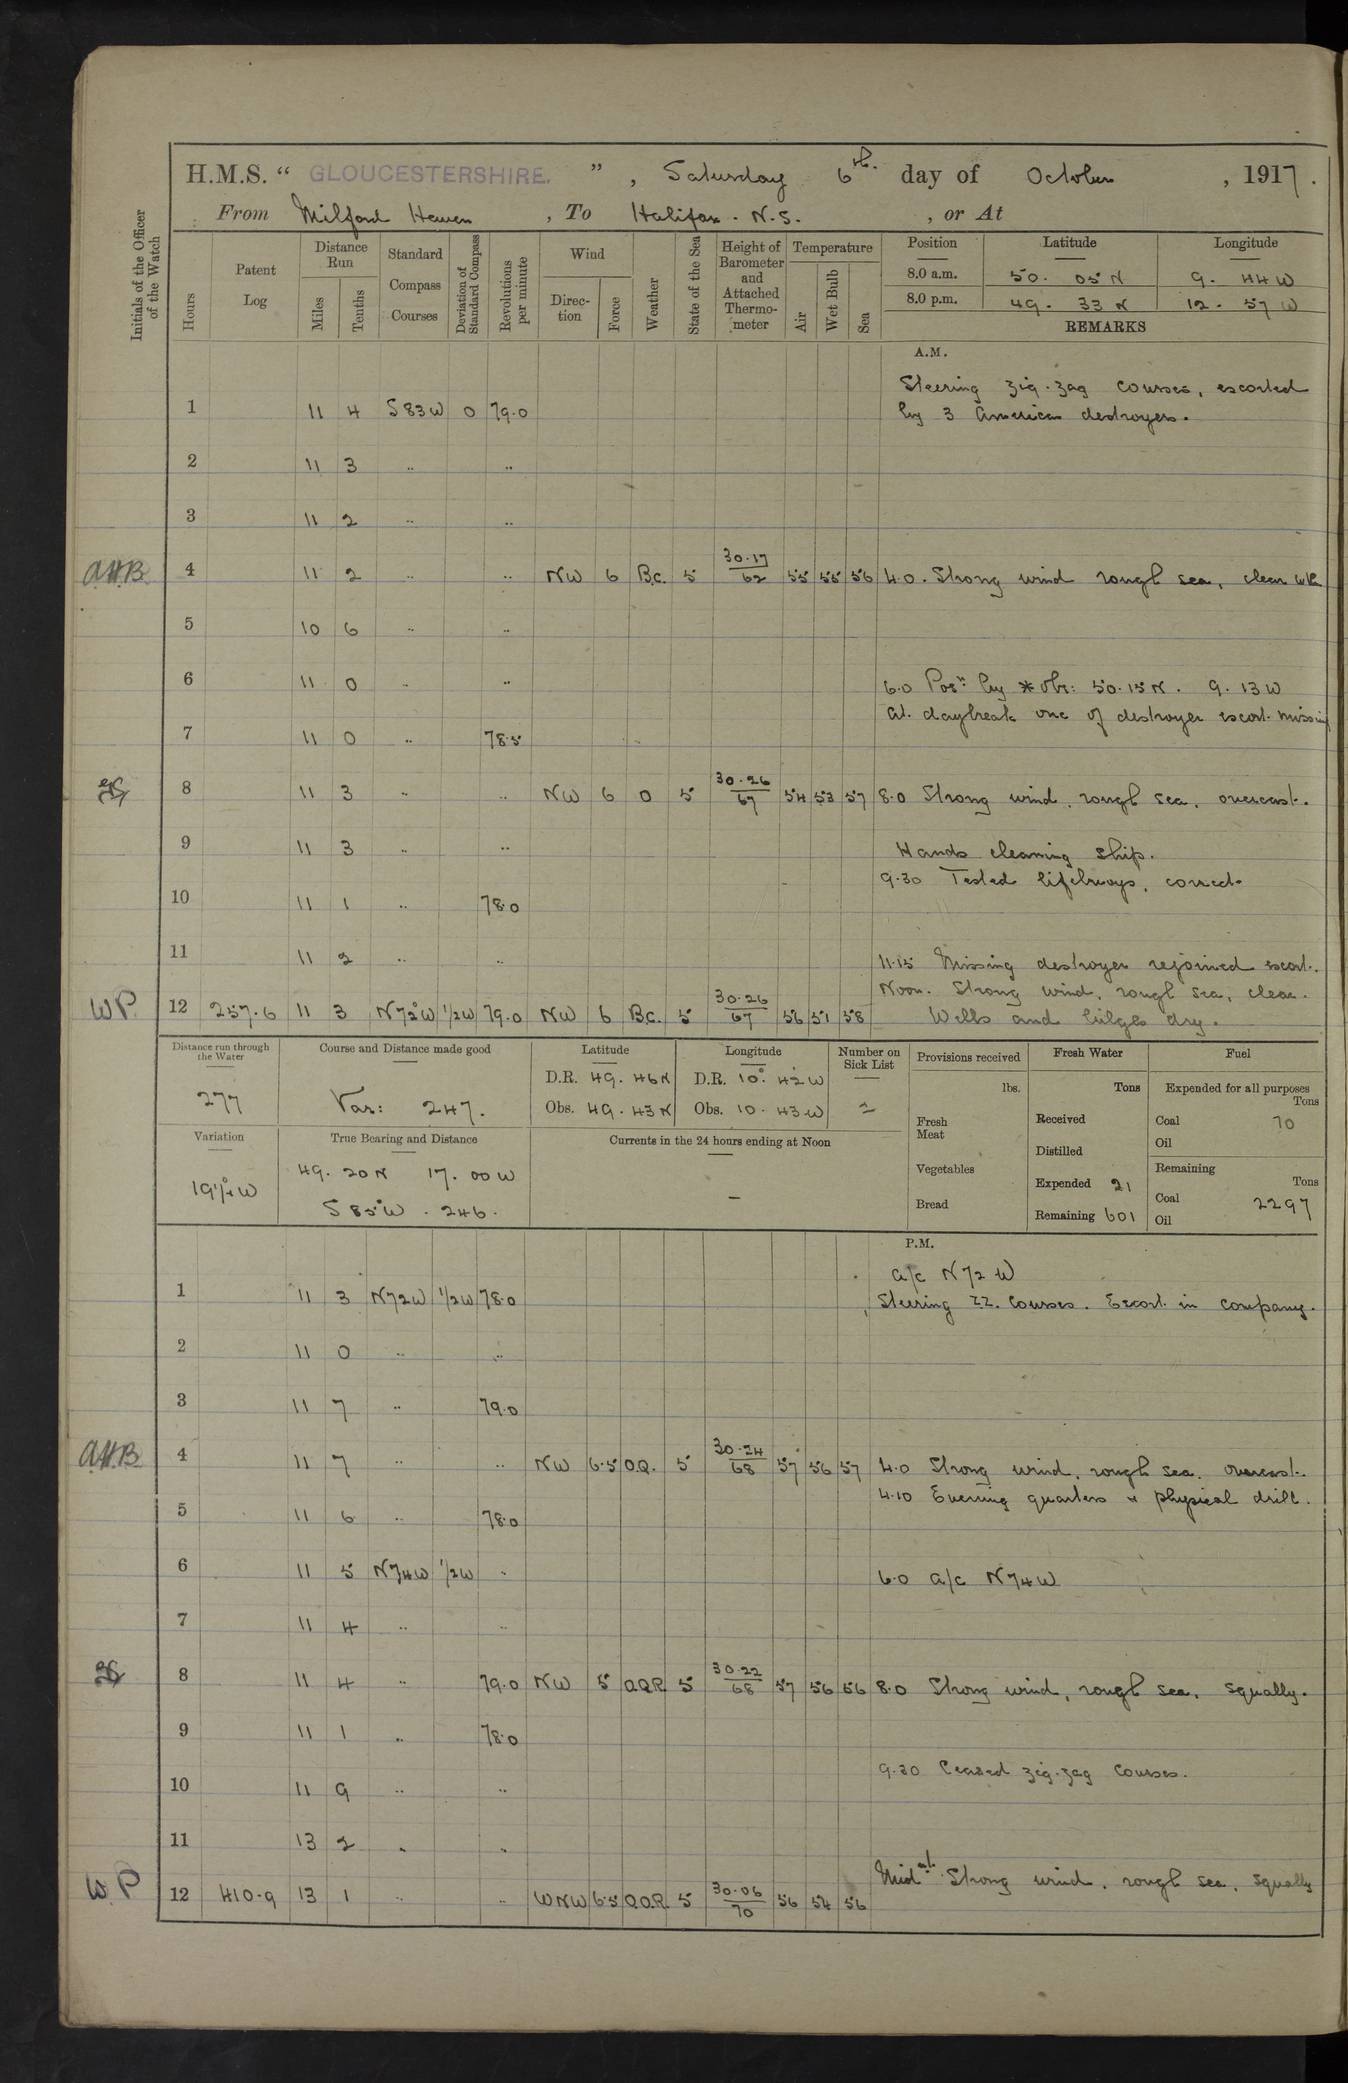 H.M.S. " GLOUCESTERSHIRE. " , Saturday 6th. day of October , 1917.
From Milford Haven , To Halifax. N.S. , or At
Initials of the Officer of the Watch
Hours
Patent Log
Distance Run
Miles
Tenths
Standard Compass Courses
Deviation of Standard Compass
Revolutions per minute
Wind
Direction
Force
Weather
State of the Sea
Height of Barometer and Attached Thermometer
Temperature
Air
Wet Bulb
Sea
Position Latitude Longitude
8.0 a.m. 50. 05 N 9. 44 W
8.0 p.m. 49. 33 N 12. 57 W
REMARKS
A.M.
Steering zig-zag courses, escorted
1 11 4 S 83 W 0 79.0 by 3 American destroyers.
2 11 3 " "
3 11 2 " "
A.H.B. 4 11 2 " " NW 6 B.c. 5 30.17/62 55 55 56 4.0. Strong wind rough sea, clear
5 10 6 " "
6 11 0 " " 6.0 Posn. by * obs: 50.15 N. 9. 13 W
At daybreak one of destroyer escort missing
7 11 0 " 78.5
8 11 3 " " NW 6 O 5 30.26/67 54 53 57 8.0 Strong wind, rough sea, overcast.
9 11 3 " " Hands cleaning ship.
9.30 Tested lifebuoys, correct.
10 11 1 " 78.0
11 11 2 " " 11.15 Missing destroyer rejoined escort.
Noon. Strong wind, rough sea, clear.
W.P. 12 257.6 11 3 N72°W 1/2W 79.0 NW 6 B.c. 5 30.26/67 56 51 58 Wells and bilges dry.
Distance run through the Water
277
Course and Distance made good
Var: 247.
Latitude
D.R. 49. 46 N
Obs. 49. 43 N
Longitude
D.R. 10°. 42' W
Obs. 10. 43 W
Number on Sick List
2
Variation
19 1/2° W
True Bearing and Distance
49. 20 N 17. 00 W
S 85° W . 246.
Currents in the 24 hours ending at Noon
–
Provisions received
lbs.
Fresh Meat
Vegetables
Bread
Fresh Water
Tons
Received
Distilled
Expended 21
Remaining 601
Fuel
Expended for all purposes
Tons
Coal 70
Oil
Remaining
Tons
Coal 2297
Oil
P.M.
a/c N 72 W
1 11 3 N72W 1/2W 78.0 Steering ZZ. courses. Escort in company.
2 11 0 " "
3 11 7 " 79.0
A.H.B. 4 11 7 " " NW 6.5 O.Q. 5 30.24/68 57 56 57 4.0 Strong wind, rough sea, overcast.
4.10 Evening quarters & physical drill.
5 11 6 " 78.0
6 11 5 N74W 1/2W " 6.0 a/c N 74 W
7 11 4 " "
8 11 4 " 79.0 NW 5 O.Q.R. 5 30.22/68 57 56 56 8.0 Strong wind, rough sea, squally.
9 11 1 " 78.0
9.30 Ceased zig-zag courses.
10 11 9 " "
11 13 2 " "
Midt. Strong wind, rough sea, squally
W.P 12 410.9 13 1 " " WNW 6.5 5 30.06/70 56 54 56